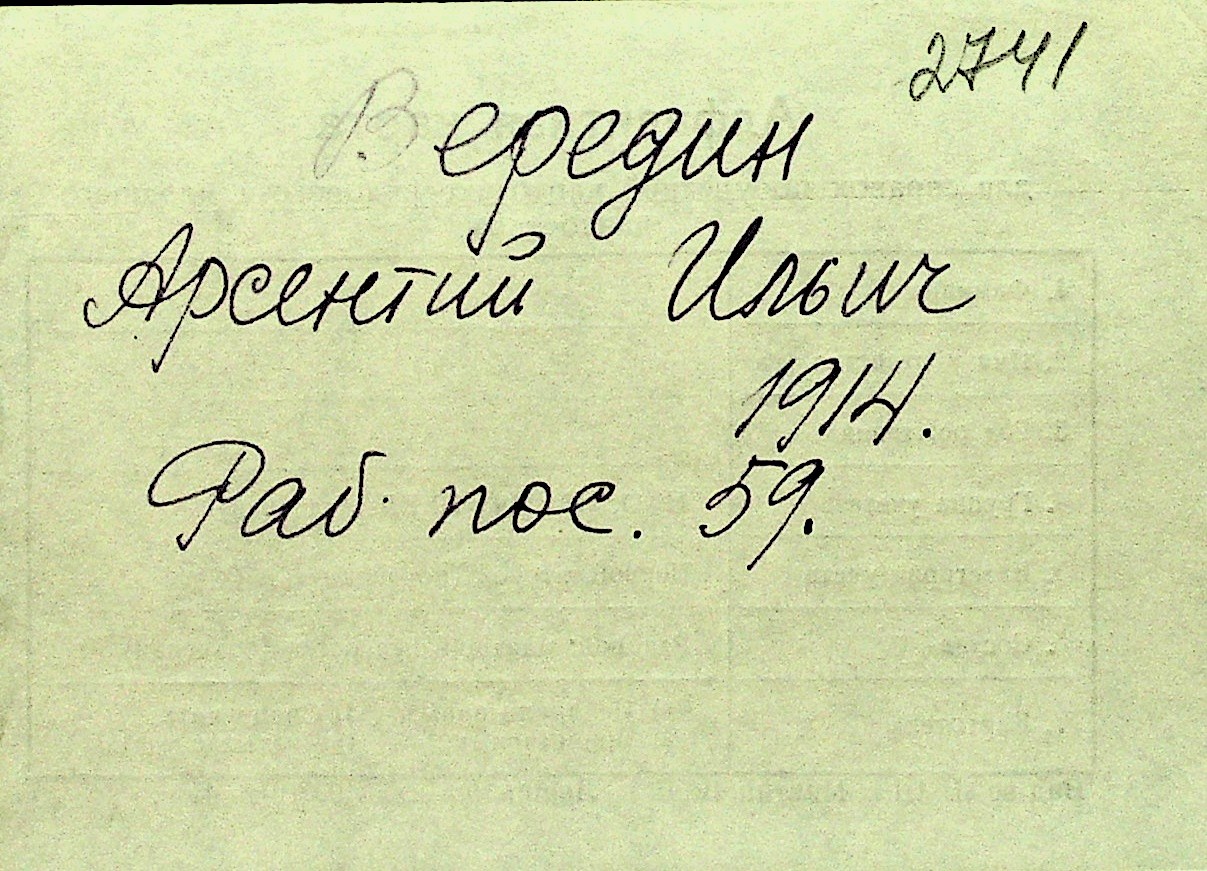 2741
Вередин
Арсентий Ильич
1914.
Раб. пос. 59.